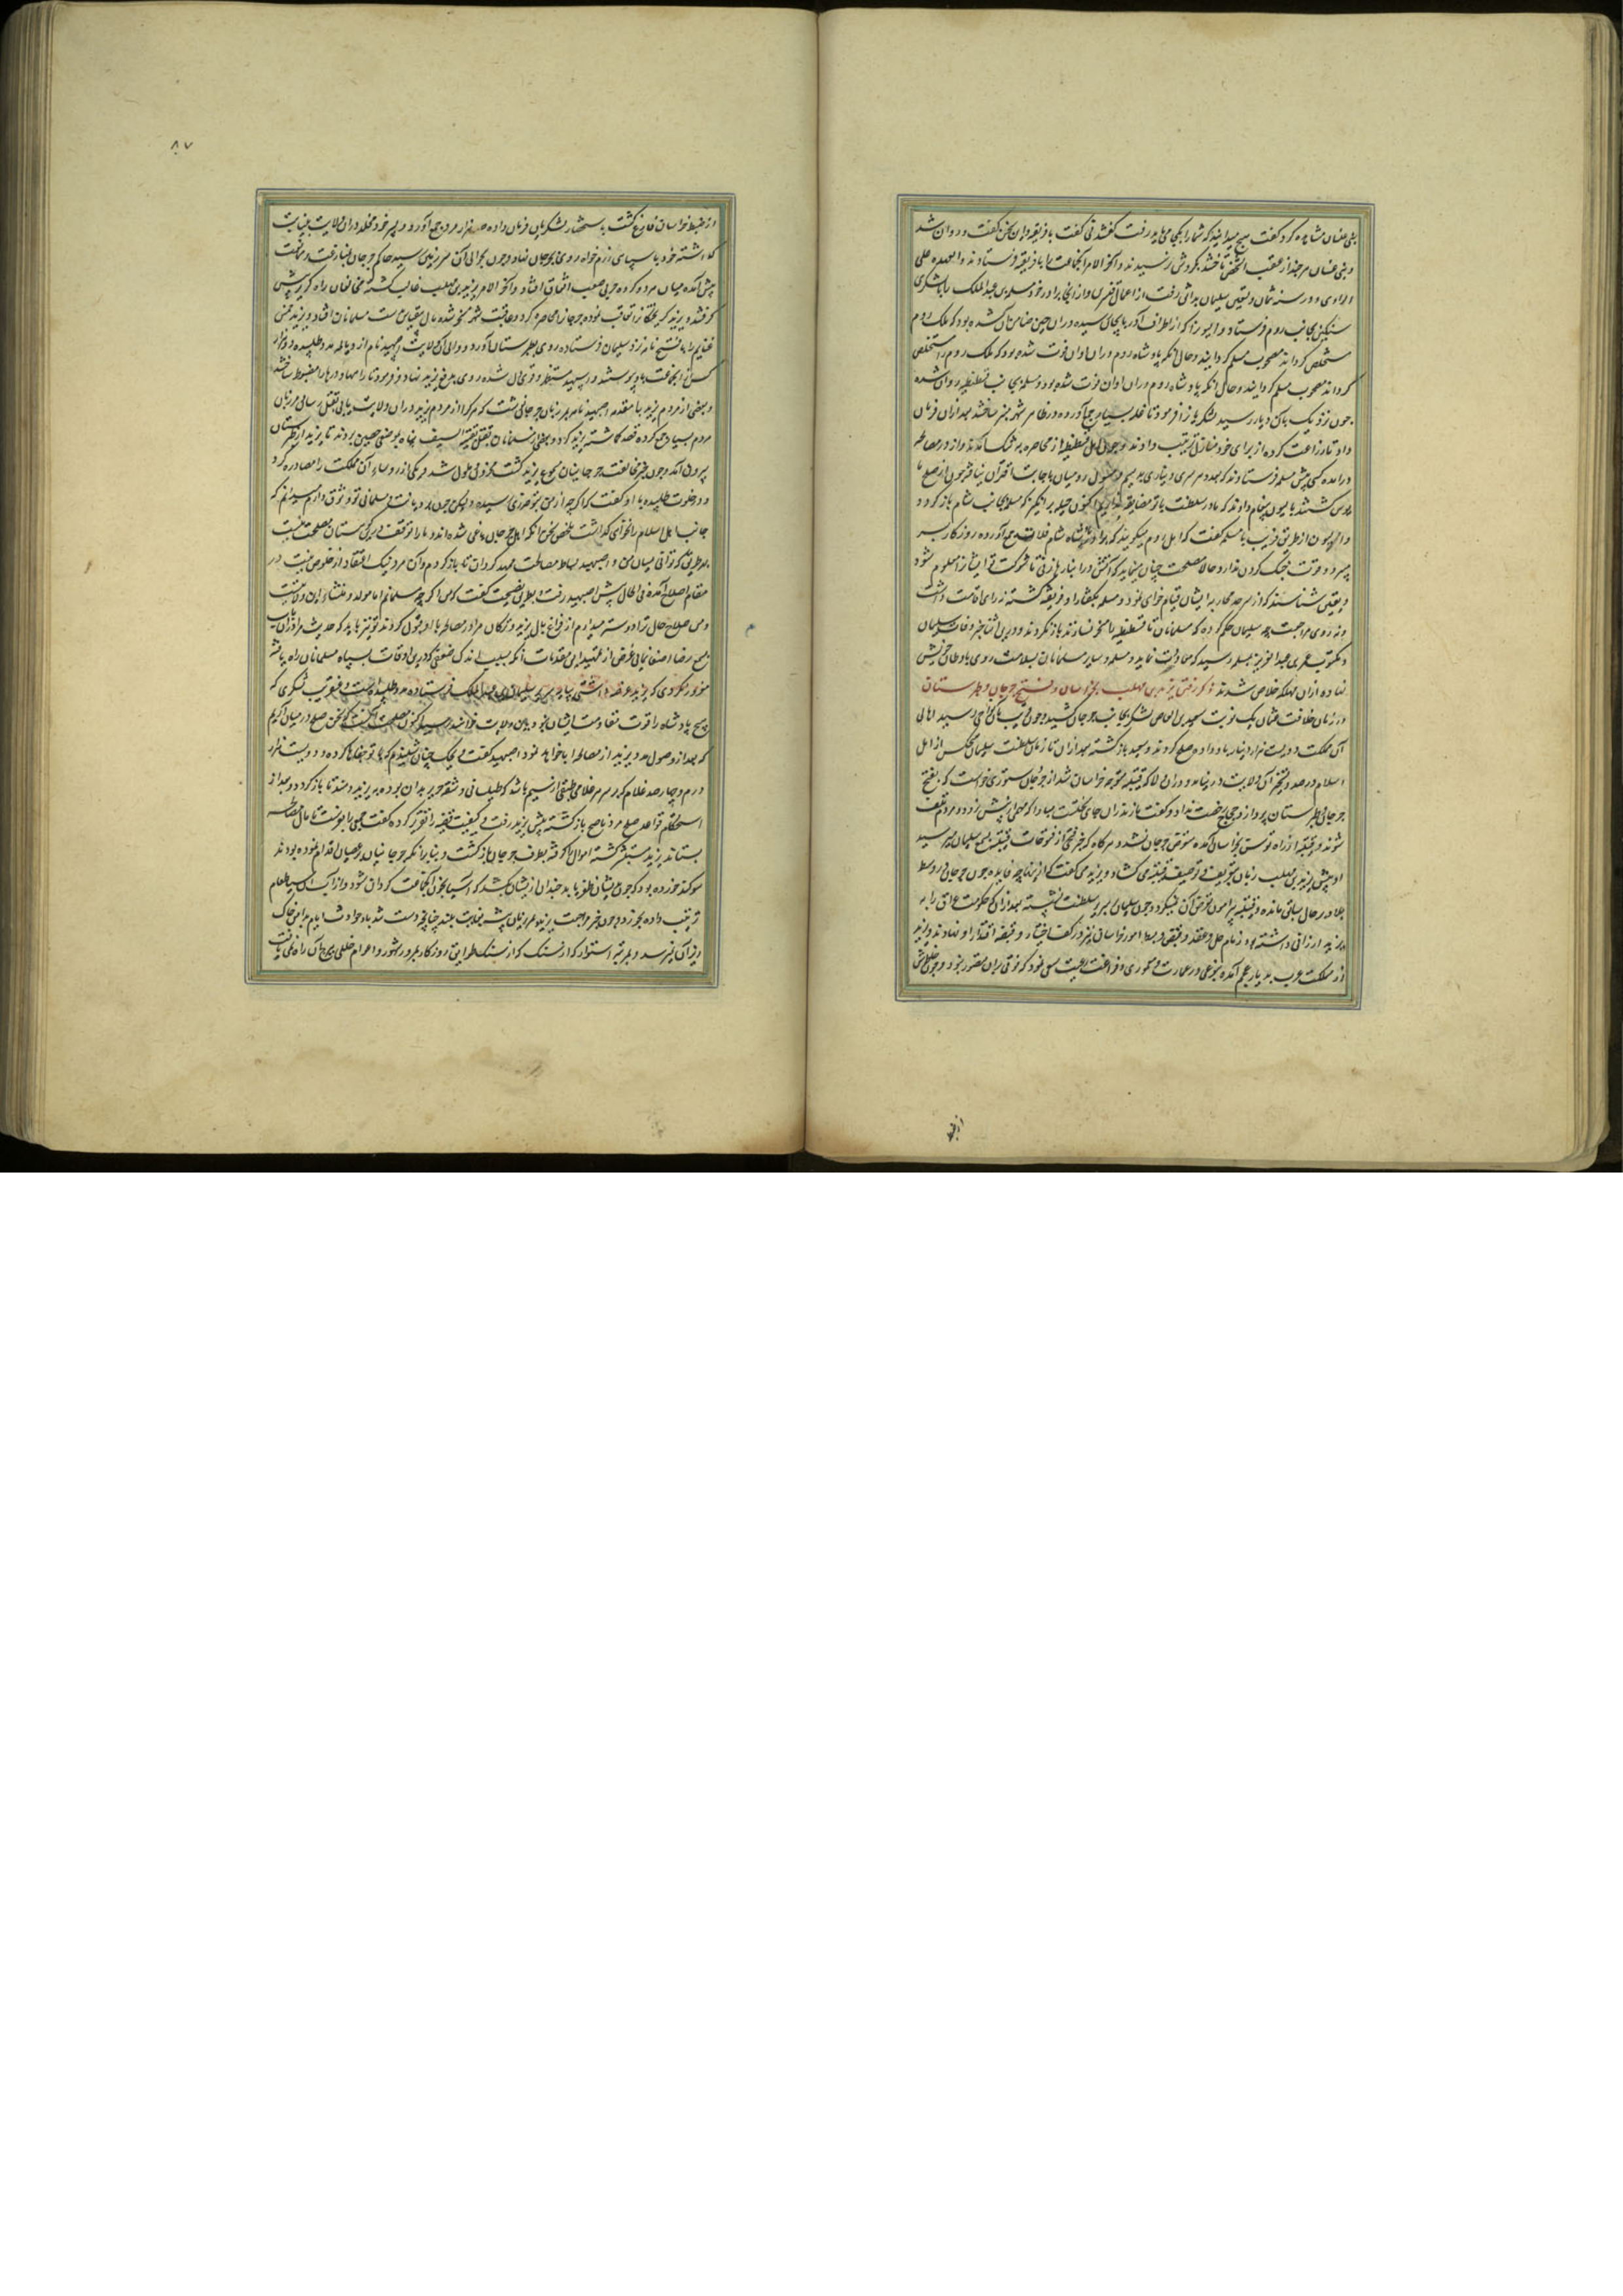 بنی غسان مشاهده کرد گفت هیچ میدانید که شما را بکجا می باید رفت گفتند نی گفت بافریقیه و این سخن گفت و روان شد
و بنی غسان هر چند از عقب آن شخص تاختند بگردش نرسیدند و آخر الامر آن جماعت را بافریقیه فرستادند و العهدة علی
الراوی و در سنه ثمان و تسعین سلیمان بدابق رفت از اعمال قنسرین و از آنجا برادر خود مسلمة بن عبدالملک را با لشکری
سنگین بجانب روم فرستاد و الیون را که از اطراف آذربایجان رسیده در آن حین ضامن آن شده بود که ملک روم
مستخلص گرداند مصحوب مسلمه گردانید و حال آنکه پادشاه روم در آن اوان فوت شده بود که ملک روم را مستخلص
گرداند مصحوب مسلمه گردانید و حال آنکه پادشاه روم در آن اوان فوت شده بود و مسلمه بجانب قسطنطنیه روان شده
چون نزدیک بآن دیار رسید لشکریان را فرمود تا غله بسیار جمع آورده در ظاهر شهر ساختند بعد از آن فرمان
داد تا زراعت کرده از برای خود منازل ترتیب دادند و چون اهل قسطنطنیه از محاصره به تنگ آمدند و از در مصالحه
درآمده کسی پیش مسلمه فرستادند که بعدد هر سری دیناری بدهیم و مسؤل رومیان باجابت اقتران نیافت چون از صلح ما
یوس گشتند بالیون پیغام دادند که ما در سلطنت با تو مضایقه نداریم اکنون حیله برانگیز که مسلمه بجانب شام بازگردد
و الیون از طریق فریب با مسلمه گفت که اهل روم میگویند که پادشاه شام غلات جمع آورده روزگار بسر
میبرد و قوت جنگ کردن ندارد و حالا مصلحت چنان مینماید که آتش در انبارها زنی تا شوکت تو ایشان را معلوم شود
و بیقین شناسند که از سر جد محاربه ایشان قیام خواهی نمود و مسلمه بگفتار او فریفته گشته نه رای اقامت داشت
و نه روی مراجعت چه سلیمان حکم کرده که مسلمانان تا قسطنطنیه را مسخر نسازند باز نگردند و درین اثنا خبر وفات سلیمان
و مکتوب عمر بن عبدالعزیز بمسلمه رسید که معاودت نماید و مسلمه و سایر مسلمانان بسلامت روی باوطان خویش
نهاده از آن مهلکه خلاص شدند ذکر رفتن یزید بن مهلب بخراسان و فتح جرجان و طبرستان
در زمان خلافت عثمان یک نوبت سعید بن العاص لشکر بجانب جرجان کشید و چون قریب بآن نواحی رسید اهالی
آن مملکت دویست هزار دینار باو داده صلح کردند و سعید بازگشته بعد از آن تا زمان سلطنت سلیمان هیچکس از اهل
اسلام در صدد تسخیر آن ولایت درنیامد و در آن ولا که قتیبه متوجه خراسان شد از حجاج دستوری خواست که بفتح
جرجان و طبرستان پردازد حجاج رخصت نداد و گفت مازندران جای سخت است مبادا که مهمی از پیش نرود و مردم تلف
شوند و قتیبه از راه قومس بخراسان آمده متعرض جرجان نشد و هرگاه که خبر فتحی از فتوحات قتیبه بسمع سلیمان میرسید
او پیش یزید بن مهلب زبان بتعریف و توصیف قتیبه می گشاد و یزید می گفت که از اینها چه فایده چون جرجان در وسط
بلاد بر حال سابق مانده و قتیبه پیرامون تعرض آن نمیگردد و چون سلیمان بر سریر سلطنت نشست بعد از آنکه حکومت عراق را به
یزید ارزانی داشته بود زمام حل و عقد و قبض و بسط امور خراسان نیز در کف اختیار و قبضه اقتدار او نهادند و یزید
از مملکت عرب بدیار عجم آمده بنوعی در عمارت و معموری و فراغت رعیت سعی نمود که فوق بر آن متصور نبود و چون خاطرش
از ضبط
۸۷
از ضبط خراسان فارغ گشت به استحضار لشکریان فرمان داده صد هزار مرد جمع آورد و پسر خود مخلد در آن ولایت به نیابت
گذاشته خود با سپاهی رزم خواه روی بجرجان نهاد و چون بحوالی آن سرزمین رسید حاکم جرجان و ممانعت
پیش آمده میان هر دو گروه حربی صعب اتفاق افتاد و آخر الامر یزید بن مهلب غالب گشته مخالفان راه گریز پیش
گرفتند و یزید گریختگان را تعاقب نموده جرجان را محاصره کرد و عاقبت شهر مسخر شده مال بیقیاس بدست مسلمانان افتاد و یزید خمس
غنایم را با فتح نامه نزد سلیمان فرستاده روی بطبرستان آورد و والی آن ولایت اصبهبد نام از دیالمه مدد طلبیده ده هزار
کس از آن جماعت باو پیوستند و اصبهبد مستظهر و قوی دل شده روی بدفع یزید نهاد و فرمود تا راهها و دربها را مضبوط ساختند
و بعضی از مردم یزید با مقدمه اصبهبد نامه بمرزبان جرجانی نوشت که هرکرا از مردم یزید در آن ولایت یابی بقتل رسانی مرزبان
مردم بسیار جمع کرده قصد گماشته یزید کرد و بعضی از مسلمانان بقتل بقیة السیف پناه بموضعی حصین بردند تا یزید از طبرستان
بیرون آمد و چون خبر مخالفت جرجانیان بسمع یزید گشت محزون و ملول شد و یکی از رؤساء آن مملکت را مصادره کرد
و در خلوت طلبیده با او گفت که اگرچه از من بتو ضرری رسیده و لیکن چون بدیانت و مسلمانی تو وثوق دارم میدانم که
جانب اهل اسلام را نخواهی گذاشت ملخص سخن آنکه اهل جرجان یاغی شده اند و ما را توقف درین کوهستان مصلحت نیست
بهر طریق که توانی میان من و اصبهبد بساط مصالحت ممهد گردان تا بازگردم و آن مرد نیک اعتقاد از خلوص نیت در
مقام اصلاح آمده فی الحال پیش اصبهبد رفت و بطریق نصیحت گفت که من اگرچه مسلمانم اما مولد و منشاء این ولایتست
و من صلاح حال ترا دوستر میدارم از فراغ بال یزید و ترکان مرا در مصالحه با او قبول کردند تو نیز باید که حدیث مرا در آن باب
بسمع رضا اصغا نمایی غرض از تمهید این مقدمات آنکه بسبب اندک ضعفی که درین اوقات بسپاه مسلمانان راه یافته
مغرور نگردی که یزید عرضه داشتی بپایه سریر سلیمان بن عبدالملک فرستاده مدد طلبیده است و عنقریب لشکری که
هیچ پادشاه را قوت مقاومت ایشان نبود باین ولایت خواهند رسید اکنون مصلحت آنست که سخن صلح در میان آریم
که بعد از وصول مدد یزید از مصالحه ابا خواهد نمود اصبهبد گفت نیک چنان شنیدم که با تو جفاها کرده و دویست هزار
درم و چهارصد غلام که بر سر هر غلامی طبقی از سیم باشد که طیلسانی و شقه حریر بدان بوده به یزید دهند تا بازگردد و بعد از
استحکام قواعد صلح مرد ناصح بازگشته پیش یزید رفت و کیفیت قضیه را تقریر کرده گفت جمعی را بفرست تا مال مصالحه
بستانند یزید مستبشر گشته اموال را گرفته بطرف جرجان بازگشت و بنابر آنکه جرجانیان بر عصیان اقدام نموده بودند
سوگند خورده بود که چون بر ایشان ظفر یابد چندان از ایشان بکشد که آسیا بخون آن جماعت گردان شود و از آن آسیا طعام
ترتیب داده بخورد و چون خبر مراجعت یزید پشته بغایت بلند چنانچه دست تند باد حوادث ایام بدامن خاک
ریز آن نرسد و بمرتبه استوار که از سنگ که از سنگ طوارق روزگار بمرور شهور و اعوام خللی باساس آن راه نمی یافت